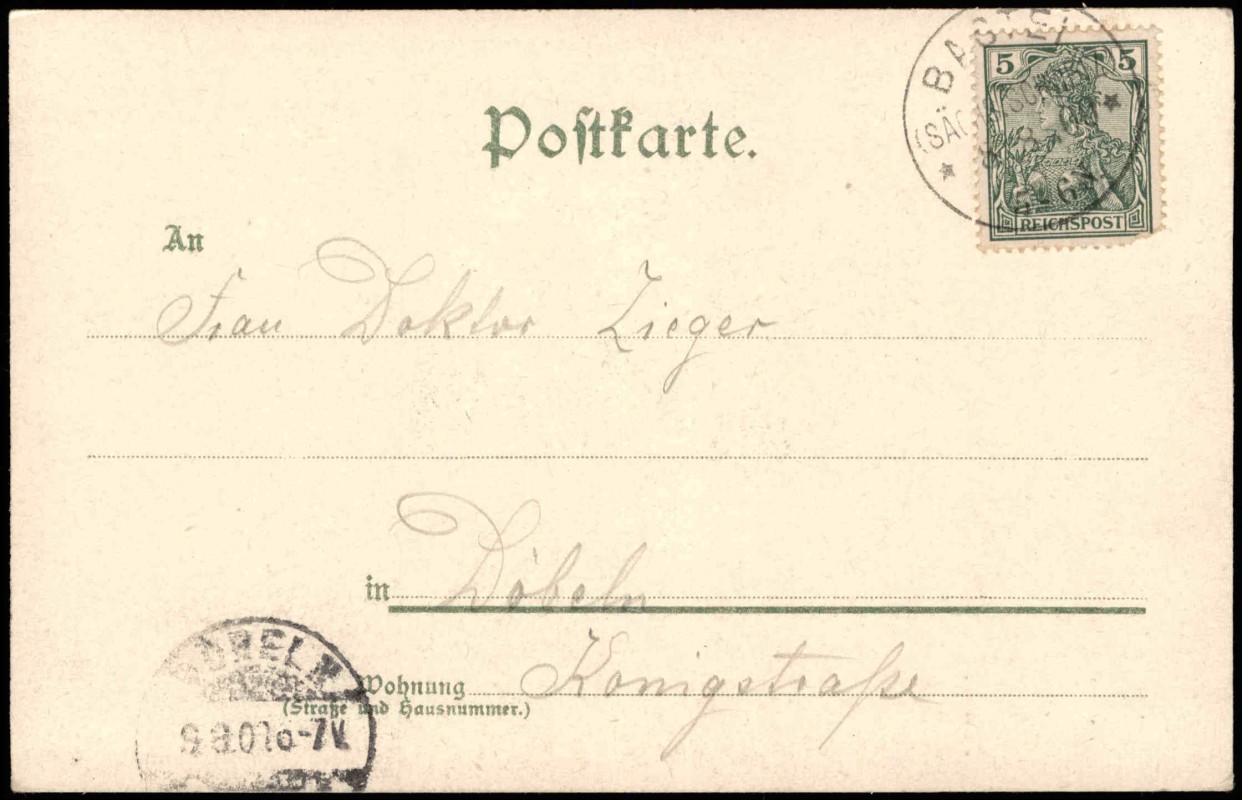 Postkarte.
BASTEI
5 5
REICHSPOST
An
Frau Doktor Zieger
in Döbeln
Königstraße
Wohnung
(Straße und Hausnummer.)
DÖBELN
9.8.01 6-7V.